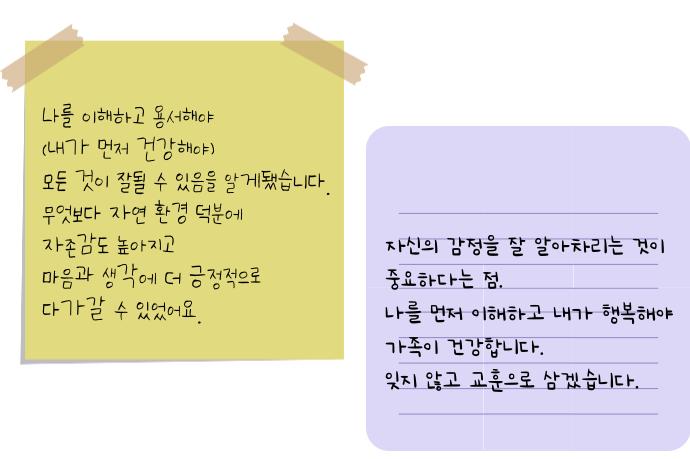 나를 이해하고 용서해야
(내가 먼저 건강해야)
모든 것이 잘될 수 있음을 알게됐습니다.
무엇보다 자연 환경 덕분에
자존감도 높아지고
마음과 생각에 더 긍정적으로
다가갈 수 있었어요.
자신의 감정을 잘 알아차리는 것이
중요하다는 점.
나를 먼저 이해하고 내가 행복해야
가족이 건강합니다.
잊지 않고 교훈으로 삼겠습니다.